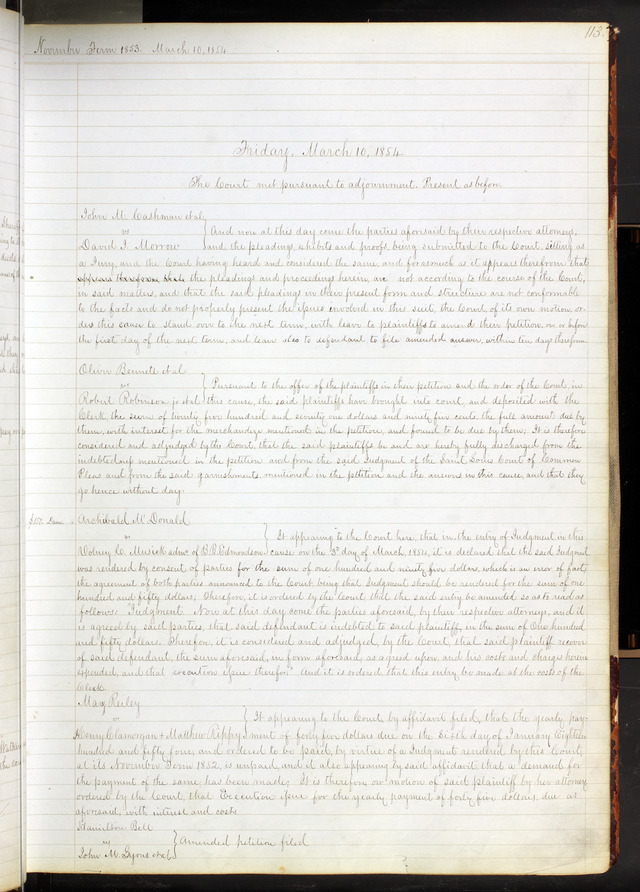 113
November Term 1853. March 10, 1854
Friday, March 10, 1854
The Court met pursuant to adjournment. Present as before
John M. Cashman et al
vs } And now at this day come the parties aforesaid by their respective attorneys,
David I. Morrow and the pleadings, exhibits and proofs being submitted to the Court, sitting as
a Jury, and the Court having heard and considered the same and forasmuch as it appears therefrom that
the pleadings and proceedings herein, are not according to the course of the Court,
in said matters, and that the said pleadings in their present form and structure are not conformable
to the facts and do not properly present the issues involved in this suit, the Court, of its own motion, or-
ders this cause to stand over to the next term, with leave to plaintiffs to amend their petition on or before
the first day of the next term, and leave also to defendant to file amended answer, within ten days therefrom
Oliver Bennett et al
vs } Pursuant to the offer of the plaintiffs in their petition and the order of the Court in
Robert Robinson jr et al this cause, the said plaintiffs have brought into court, and deposited with the
Clerk, the sum of twenty five hundred and seventy one dollars and ninety five cents, the full amount due by
them, with interest for the merchandize mentioned in the petition, and found to be due by them; It is therefore
considered and adjudged by the Court, that the said plaintiffs be and are hereby fully discharged from the
indebtedness mentioned in the petition and from the said Judgment of the Saint Louis Court of Common
Pleas and from the said garnishments, mentioned in the petition and the answers in this cause, and that they
go hence without day.
$150. Dam. Archibald McDonald
vs } It appearing to the Court here, that in the entry of Judgment in this
Wolney C. Musick admr of B. B. Edmondson cause on the 3d day of March, 1854, it is declared that the said Judgment
was rendered by consent of parties for the sum of one hundred and ninety five dollars, which is an error of fact,
the agreement of both parties announced to the Court being that Judgment should be rendered for the sum of one
hundred and fifty dollars; Therefore, it is ordered by the Court that the said entry be amended so as to read as
follows: Judgment. Now at this day come the parties aforesaid, by their respective attorneys, and it
is agreed by said parties, that said defendant is indebted to said plaintiff, in the sum of One hundred
and fifty dollars. Therefore, it is considered and adjudged, by the Court, that said plaintiff recover
of said defendant, the sum aforesaid, in form aforesaid, as agreed upon, and his costs and charges herein
expended, and that execution issue therefor. And it is ordered that this entry be made at the costs of the
Clerk
Mary Reiley
vs } It appearing to the Court by affidavit filed, that the yearly pay-
Henry Clamorgan & Matthew Rippy ment of forty five dollars due on the sixth day of January Eighteen
hundred and fifty four, and ordered to be paid, by virtue of a Judgment rendered by this Court,
at its November Term 1852, is unpaid, and it also appearing by said affidavit that a demand for
the payment of the same has been made; It is therefore on motion of said plaintiff by her attorney
ordered by the Court, that Execution issue for the yearly payment of forty five dollars, due as
aforesaid, with interest and costs.
Hamilton Bell
vs } Amended petition filed
John M. Lyons et al